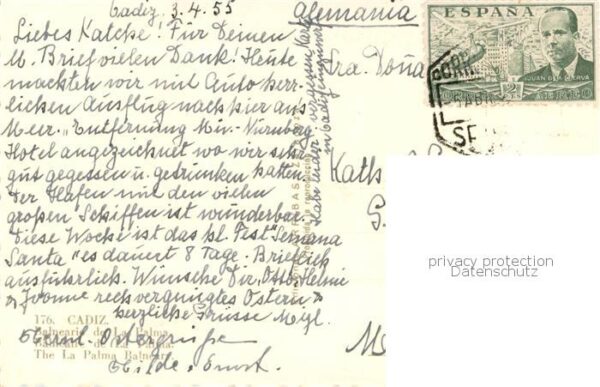 Cadiz, 3.4.55
Liebes Katche! Für Deinen
l. Brief vielen Dank! Heute
machten wir mit Auto herr-
lichen Ausflug nach hier ans
Meer. Entfernung Nürnberg
Hotel angezeichnet wo wir sehr
gut gegessen u. getrunken hatten.
Der Hafen mit den vielen
großen Schiffen ist wunderbar.
Diese Woche ist das Fest "Semana
Santa" es dauert 8 Tage. Brieflich
ausführlich. Wünsche Dir, Otto,
Yvonne recht vergnügtes Ostern
herzliche Grüsse
176. CADIZ.
Balneario de La Palma.
The La Palma Balneary
Ostergrüße
Hilde. Ernst.
Habe leider vergessen Karte
in Cadiz
Alemania
Sra. Doña
Kath
S
M
ESPAÑA
JUAN DE LA CIERVA
CORREO AEREO
2
privacy protection
Datenschutz